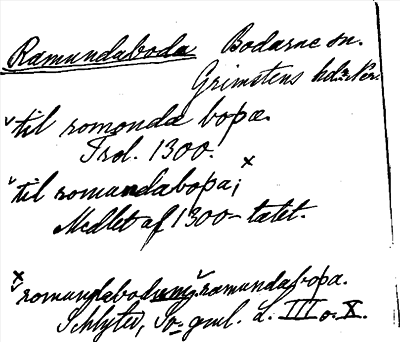 Ramundaboda Bodarne sn.
Grimstens hd. Ner.
til romonda boþa.
Trol. 1300.
til romundaboþa; x
Medlet af 1300-talet.
x romundabodum, romundaboþa.
Schlyter, Sö- gml. L. III o. X.